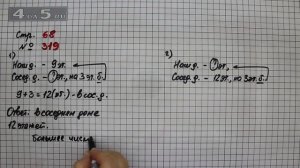 4 5
Стр. 68
№ 319
1)
Наш д. - 9 эт.
Сосед. д. - ?эт., на 3 эт. б.
9+3=12(эт.) - в сос. д.
Ответ: в соседнем доме
12 этажей.
Большее число
2)
Наш д. - ?эт.
Сосед. д. - 12 эт., на 3 эт. б.